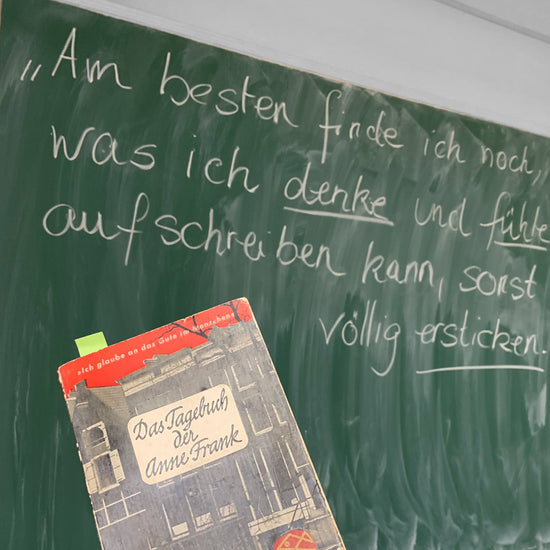 „Am besten finde ich noch,
was ich denke und fühle
aufschreiben kann, sonst
völlig ersticken.
»Ich glaube an das Gute im Menschen«
Das Tagebuch
der
Anne Frank